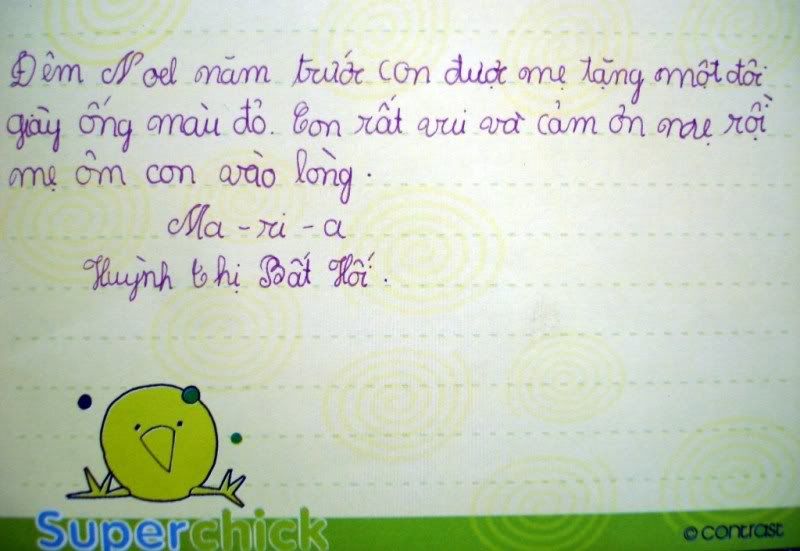 Đêm Noel năm trước con được mẹ tặng một đôi
giày ống màu đỏ. Con rất vui và cảm ơn mẹ rồi
mẹ ôm con vào lòng.
Ma - ri - a
Huỳnh thị Bất Hối.
Superchick
© contrast